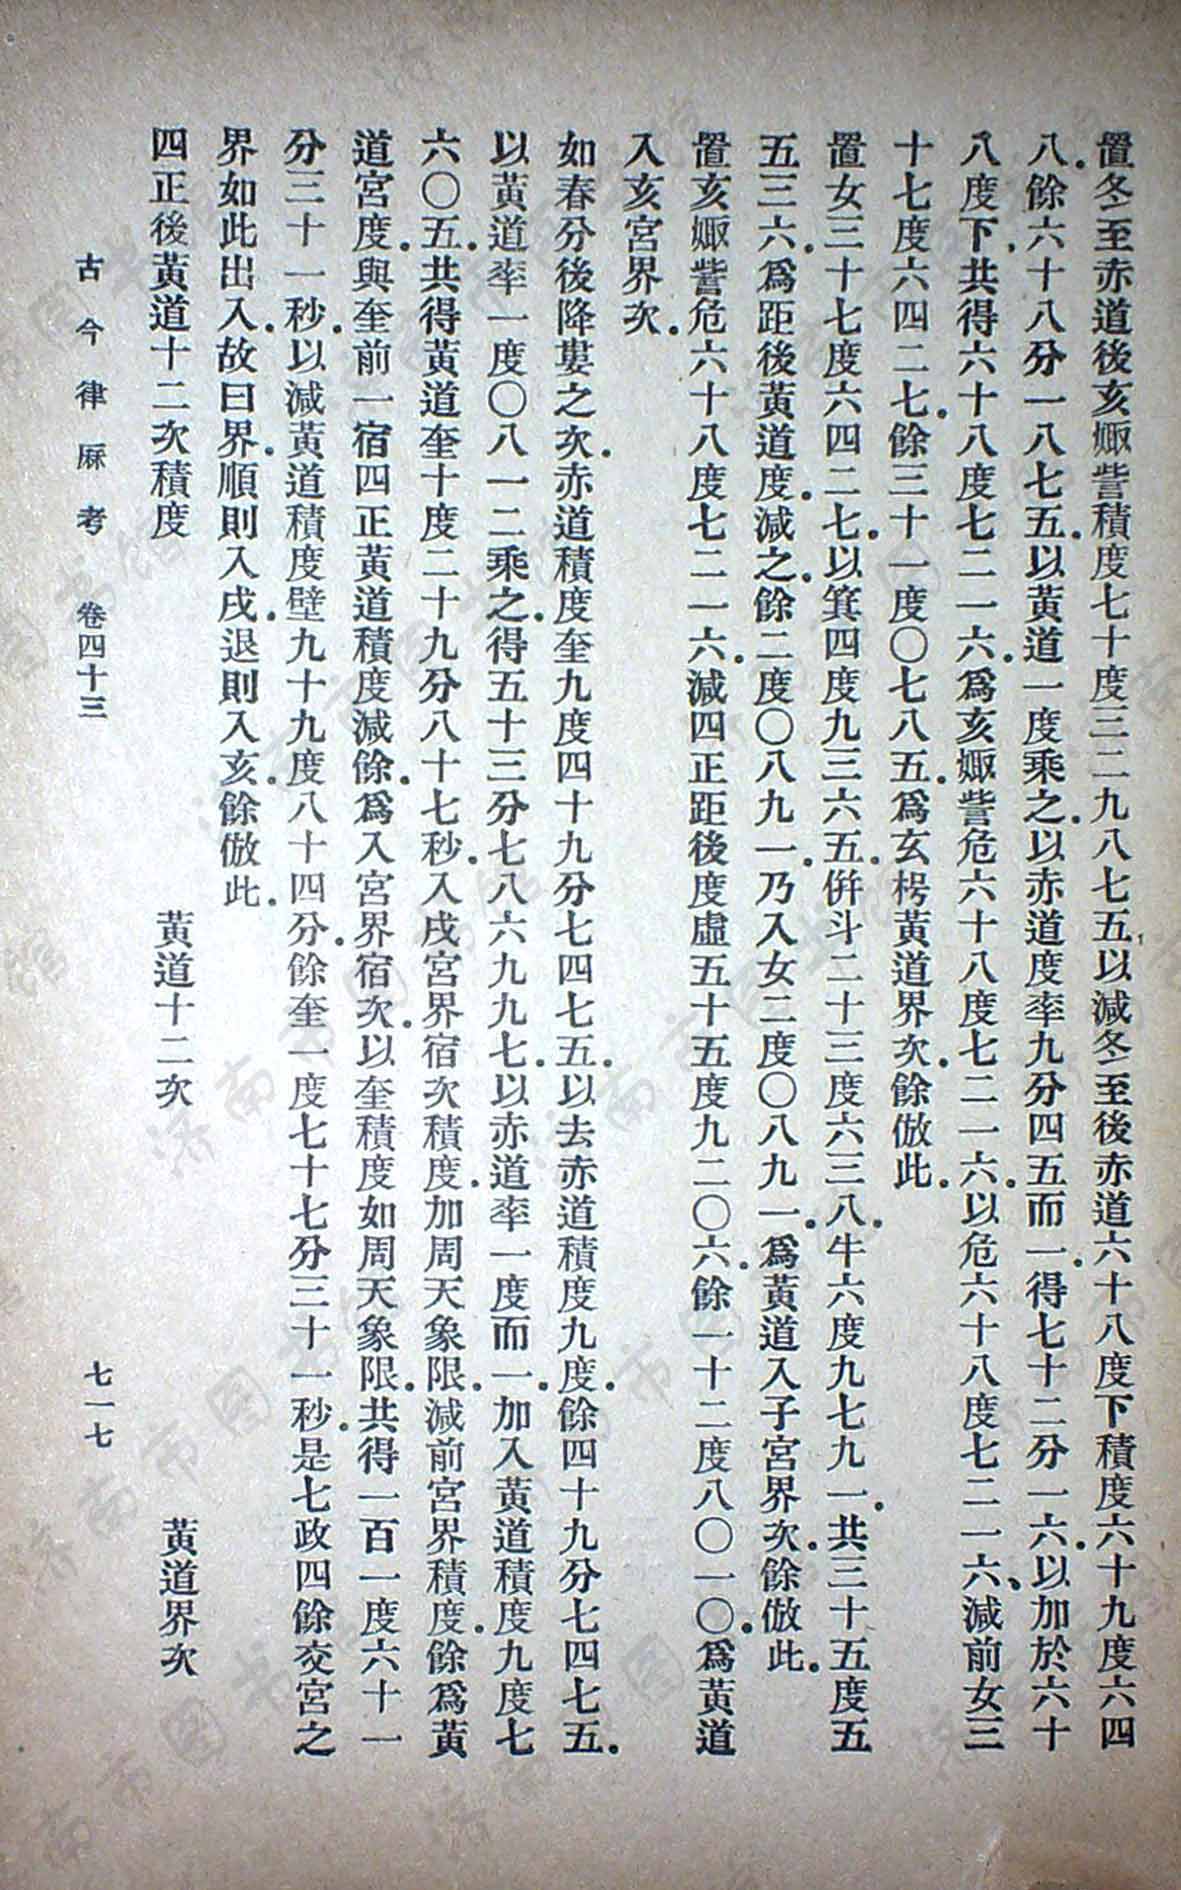 置冬至赤道後亥娵訾積度七十度三二九八七五以減冬至後赤道六十八度下積度六十九度六四
八。餘六十八分一八七五。以黃道一度乘之。以赤道度率九分四五而一。得七十二分一六。以加於六十
八度下、共得六十八度七二一六。爲亥娵訾危六十八度七二一六。以危六十八度七二一六、減前女三
十七度六四二七。餘三十一度〇七八五。爲玄枵黃道界次。餘倣此。
置女三十七度六四二七。以箕四度九三六五。併斗二十三度六三八。牛六度九七九一。共三十五度五
五三六。爲距後黃道度。減之。餘二度〇八九一。乃入女二度〇八九一。爲黃道入子宮界次。餘倣此。
置亥娵訾危六十八度七二一六。減四正距後度虛五十五度九二〇六。餘一十二度八〇一〇。爲黃道
入亥宮界次。
如春分後降婁之次。赤道積度奎九度四十九分七四七五。以去赤道積度九度。餘四十九分七四七五。
以黃道率一度〇八一二乘之。得五十三分七八六九九七。以赤道率一度而一。加入黃道積度九度七
六〇五。共得黃道奎十度二十九分八十七秒。入戌宮界宿次積度。加周天象限。減前宮界積度。餘爲黃
道宮度。與奎前一宿四正黃道積度減餘。爲入宮界宿次。以奎積度如周天象限。共得一百一度六十一
分三十一秒。以減黃道積度壁九十九度八十四分。餘奎一度七十七分三十一秒。是七政四餘交宮之
界如此出入。故曰界。順則入戌。退則入亥。餘倣此。
四正後黃道十二次積度　黃道十二次　黃道界次
古今律厤考　卷四十三　七一七